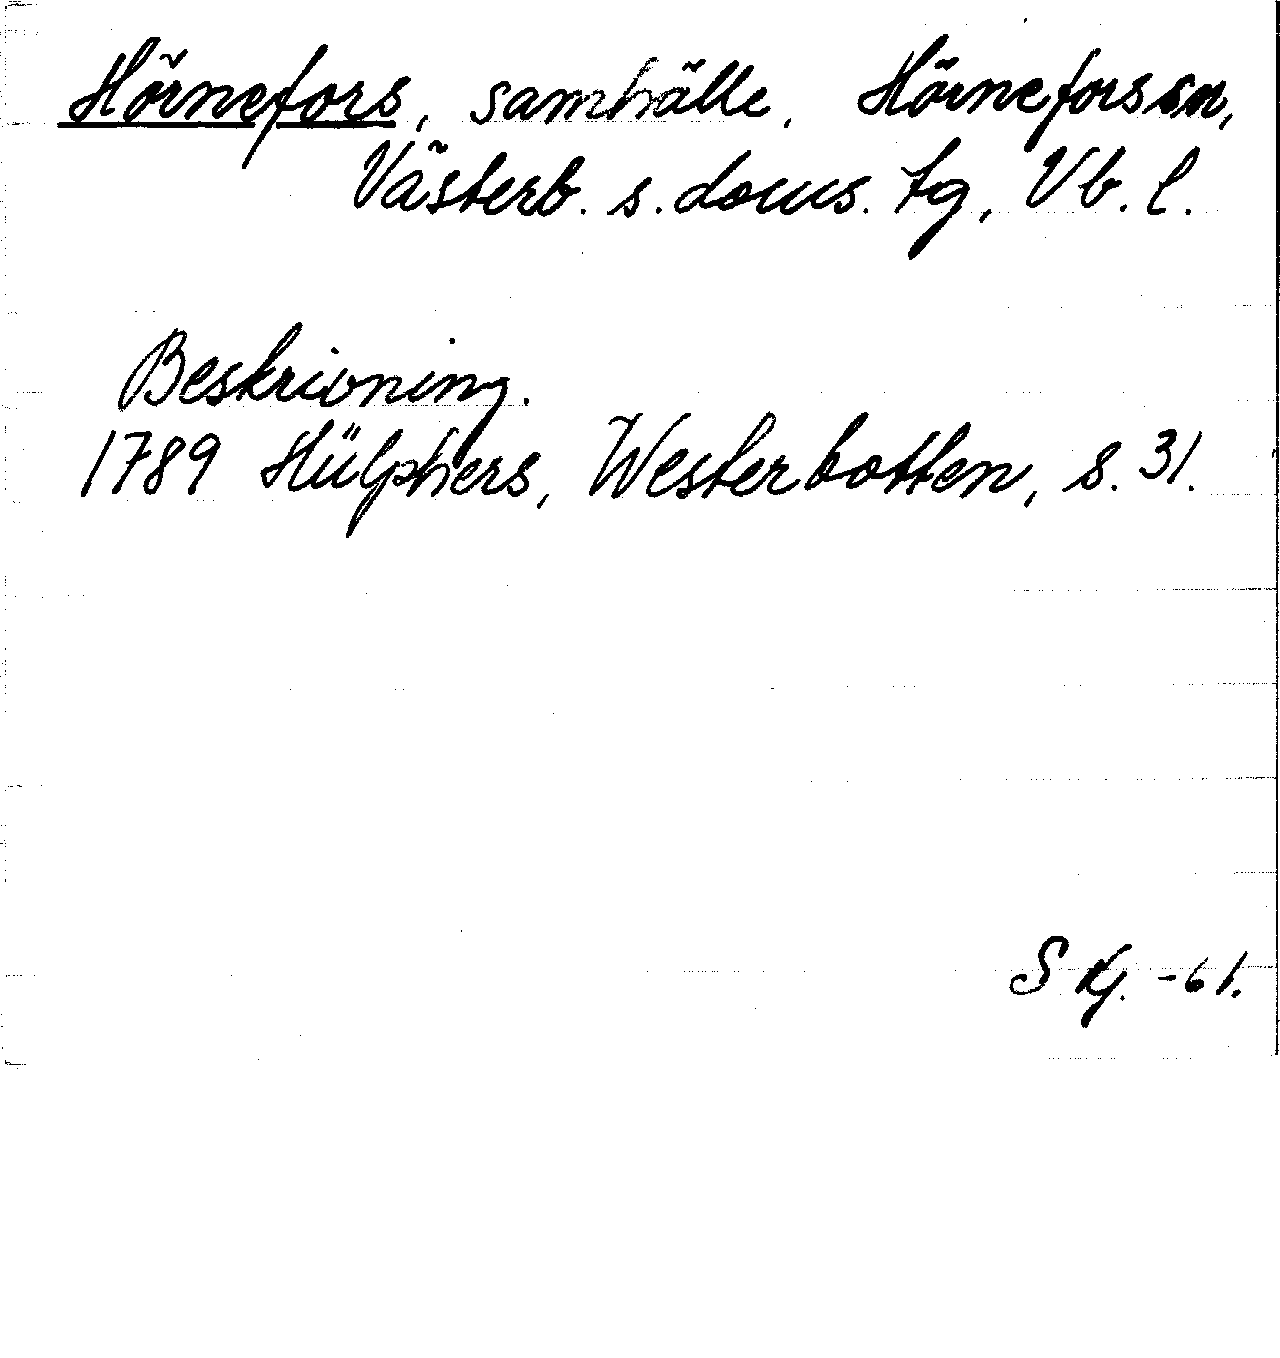 Hörnefors, samhälle, Hörnefors sn,
Västerb. s. doms. tg, Vb. l.
Beskrivning.
1789 Hülphers, Westerbotten, s. 31.
S Kg. -61.